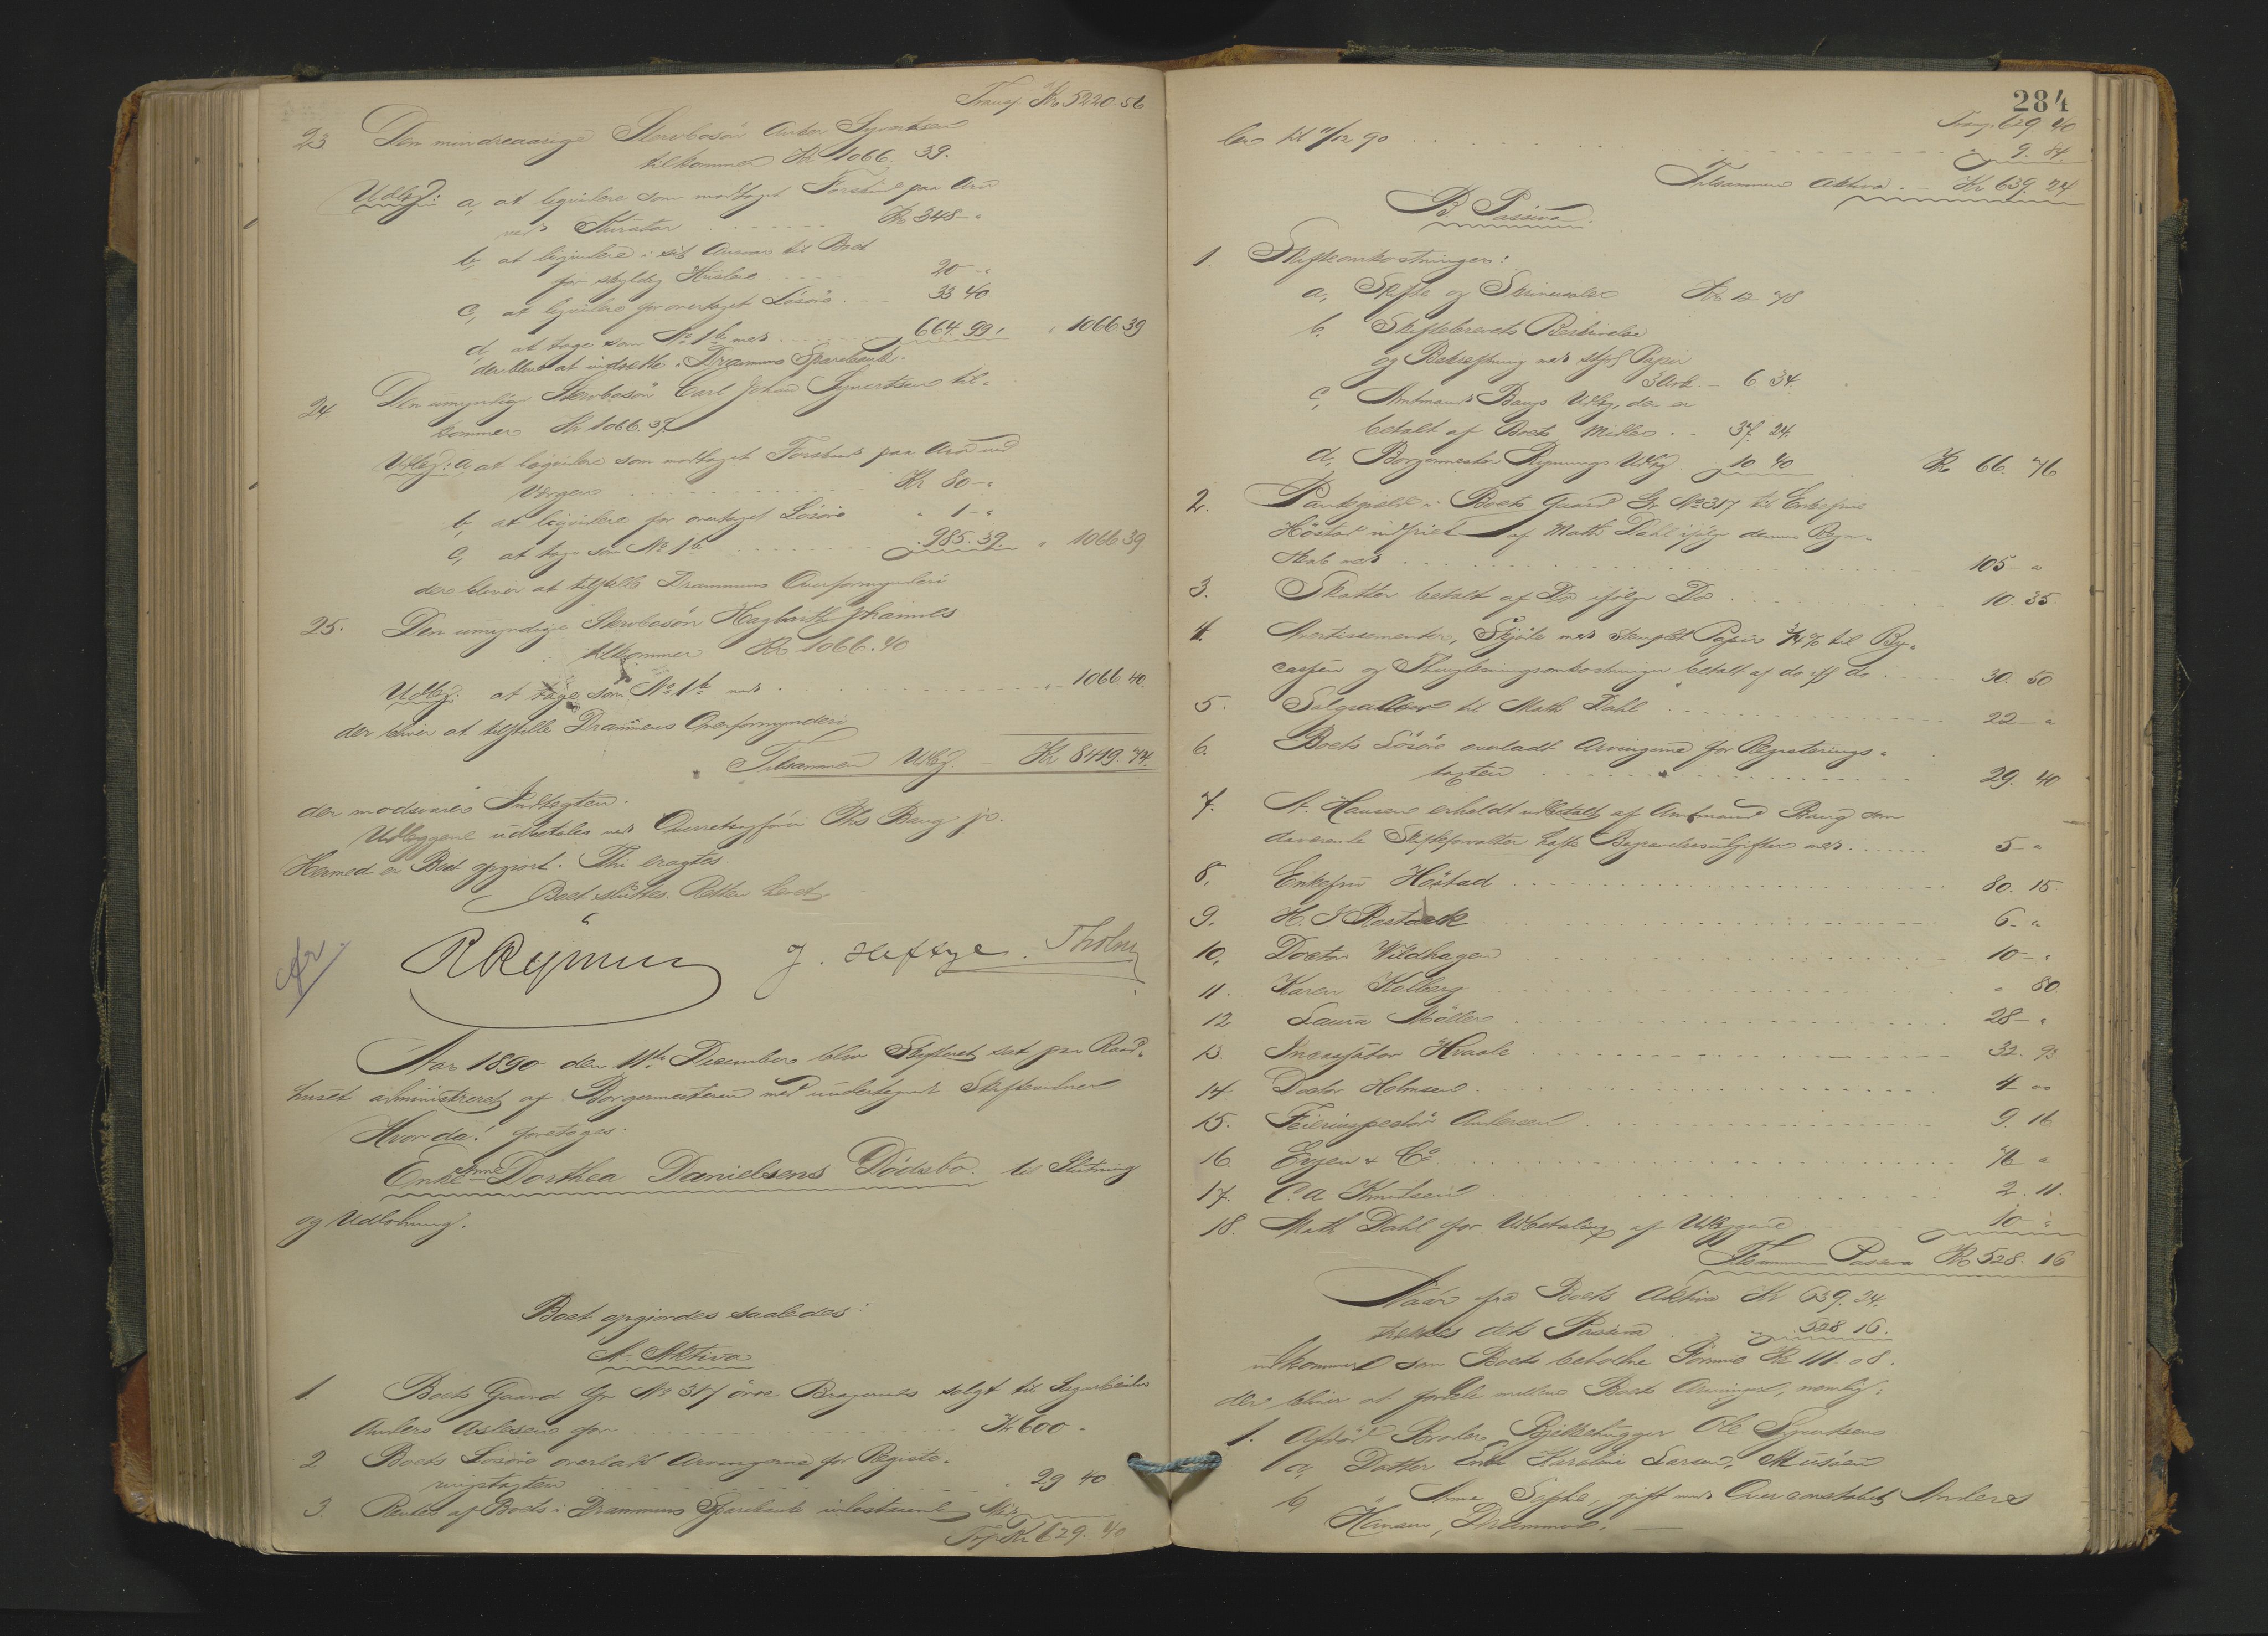 Transp. Kr 5220.56
23 Den mindreaarige Stervbosøn Anton Syvertsen
tilkommer Kr 1066. 39.
Udlæg: a, at liquidere som modtaget Forskud paa Arv
ved Kurator Kr 348-"
b, at liquidere i sit Ansvar til Boet
for skyldig Husleie 20-"
c, at liquidere for overtaget Løsøre 33 40
d, at tage som No 1b med 664.99. " 1066 39
der bliver at indsætte i Drammens Sparebank.
24 Den umyndige Stervbosøn Carl Johan Syvertsen til-
kommer Kr 1066.39
Udlæg: a, at liquidere som modtaget Forskud paa Arv ved
Værgen Kr 80-"
b, at liquidere for overtaget Løsøre " 1-"
c, at tage som No 1b 985.39. " 1066 39
der bliver at tilstille Drammens Overformynderi
25. Den umyndige Stervbosøn Hagbarth Johannes
tilkommer Kr 1066.40
Udlæg: at tage som No 1b med " 1066 40.
der bliver at tilstille Drammens Overformynderi
Tilsammen Udlæg Kr 8419.74.
der modsvarer Indtægten.
Udlæggene udbetales ved Overretssagfører Chs Bang jr.
Hermed er Boet opgjort. Thi eragtes:
Boet sluttes. Retten hævet
R Rymung J. Heftye. Tholm
Aar 1890 den 11te December blev Skifteret sat paa Raad-
huset administreret af Borgermesteren med undertegnede Skiftevidner
Hvor da! foretoges:
Enke Anne Dorthea Danielsens Dødsbo. til Slutning
og Udlodning.
Boet opgjordes saaledes:
A. Aktiva
1 Boets Gaard Gr No 317 øvre Bragernes solgt til Sagarbeider
Anders Aslesen for Kr 600-
2 Boets Løsøre overladt Arvingerne for Registe-
ringstaxten " 29 40
3. Renter af Boets i Drammens Sparebank indestaaende Mid-
Trp Kr 629. 40
284
Transp. 629. 40
ler til 11/12 90 " 9. 84.
Tilsammen Aktiva Kr 639. 24
B. Passiva
1. Skifteomkostninger:
a, Skifte og Skriversalær Kr 12 78
b. Skiftebrevets Beskrivelse
og Bekræftning med stpl Papir
3 Ark. - 6 34.
c, Amtmand Bangs Udlæg, der er
betalt af Boets Midler 37. 24.
d, Borgermester Rymungs Udlæg 10 40 Kr 66. 76
2. Pantegjeld i Boets Gaard Gr No 317 til Enkefrue
Høstad indfriet af Math Dahl ifølge dennes Regn-
skab med 105 "
3. Skatter betalt af Do ifølge Do 10. 35.
4. Avertissementer, Skjøde med stemplet Papir 3/4 % til By-
cassen og Thinglæsningsomkostninger betalt af do iff do 30. 50
5. Salgsalær til Math Dahl 22 - "
6. Boets Løsøre overladt Arvingerne for Registerings-
taxten 29. 40
7. A. Hansen erholdt udbetalt af Amtmand Bang som
daværende Skifteforvalter hafte Begravelsesudgifter med 5 - "
8. Enkefru Høstad 80. 15.
9. H. J Rostock 6 - "
10. Doctor Wildhagen 10 - "
11. Karen Kolberg " 80.
12 Laura Møller 28 - "
13. Incassator Hvaale 32. 93.
14. Doctor Holmsen 4 - "
15. Feierinspectør Andersen 9. 16
16. Evjen & Co 76 "
17. C. A Knutsen 2. 11.
18. Math Dahl for Udbetaling af Udlæggene 10 "
Tilsammen Passiva Kr 528. 16
Naar fra Boets Aktiva Kr 639. 24.
trækkes dets Passiva " 528 16.
udkommer som Boets beholdne Formue Kr 111. 08.
der bliver at fordele mellem Boets Arvinger, nemlig:
1. Afdød Broder Bjelkehugger Ole Syvertsens
a, Datter Enke Karoline Larsen, Musøen
b, " Anne Sophie, gift med Overconstabel Anders
Hansen, Drammen. -